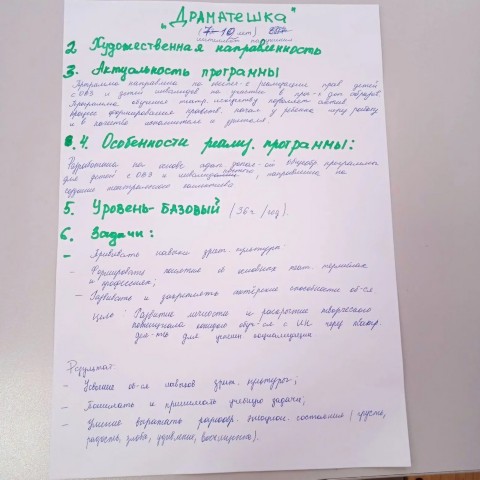 „Драматешка"
(7-10 лет)
2 Художественная направленность
3. Актуальность программы
Программа направлена по реализации прав детей
с ОВЗ и детей инвалидов на участие в доп. образов.
Программа обучения театр. искусству позволяет актив.
процесс формирования нравств. начал у ребенка через работу
и в качестве исполнителя и зрителя.
4. Особенности реализ. программы:
Разработана на основе адап. допол-ой общеобр программы
для детей с ОВЗ и инвалидностью, направлена на
создание театрального коллектива
5. Уровень- Базовый (36ч /год).
6. Задачи:
- Прививать навыки зрит. культуры
- Формировать понятия о основных теат. терминах
и профессиях;
- Развивать и закреплять актёрские способности об-ся
Цель: Развитие личности и раскрытие творческого
потенциала каждого обуч-ся с через театр.
деят-ть для успешн социализации
Результат:
- Усвоение об-ся навыков зрит. культуры;
- Понимать и принимать учебную задачу;
- Умение выражать разнообр. эмоцион. состояния (грусть,
радость, злоба, удивление, восхищение).